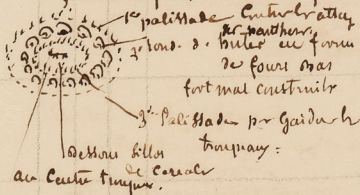 1re palissade Contre l'attaq
des pantheres
2e rond de huttes en forme
de fours mais
fort mal construits
3e Palissade pr Garder le
troupeaux.
Dessous Silos
de Cereales
au Centre